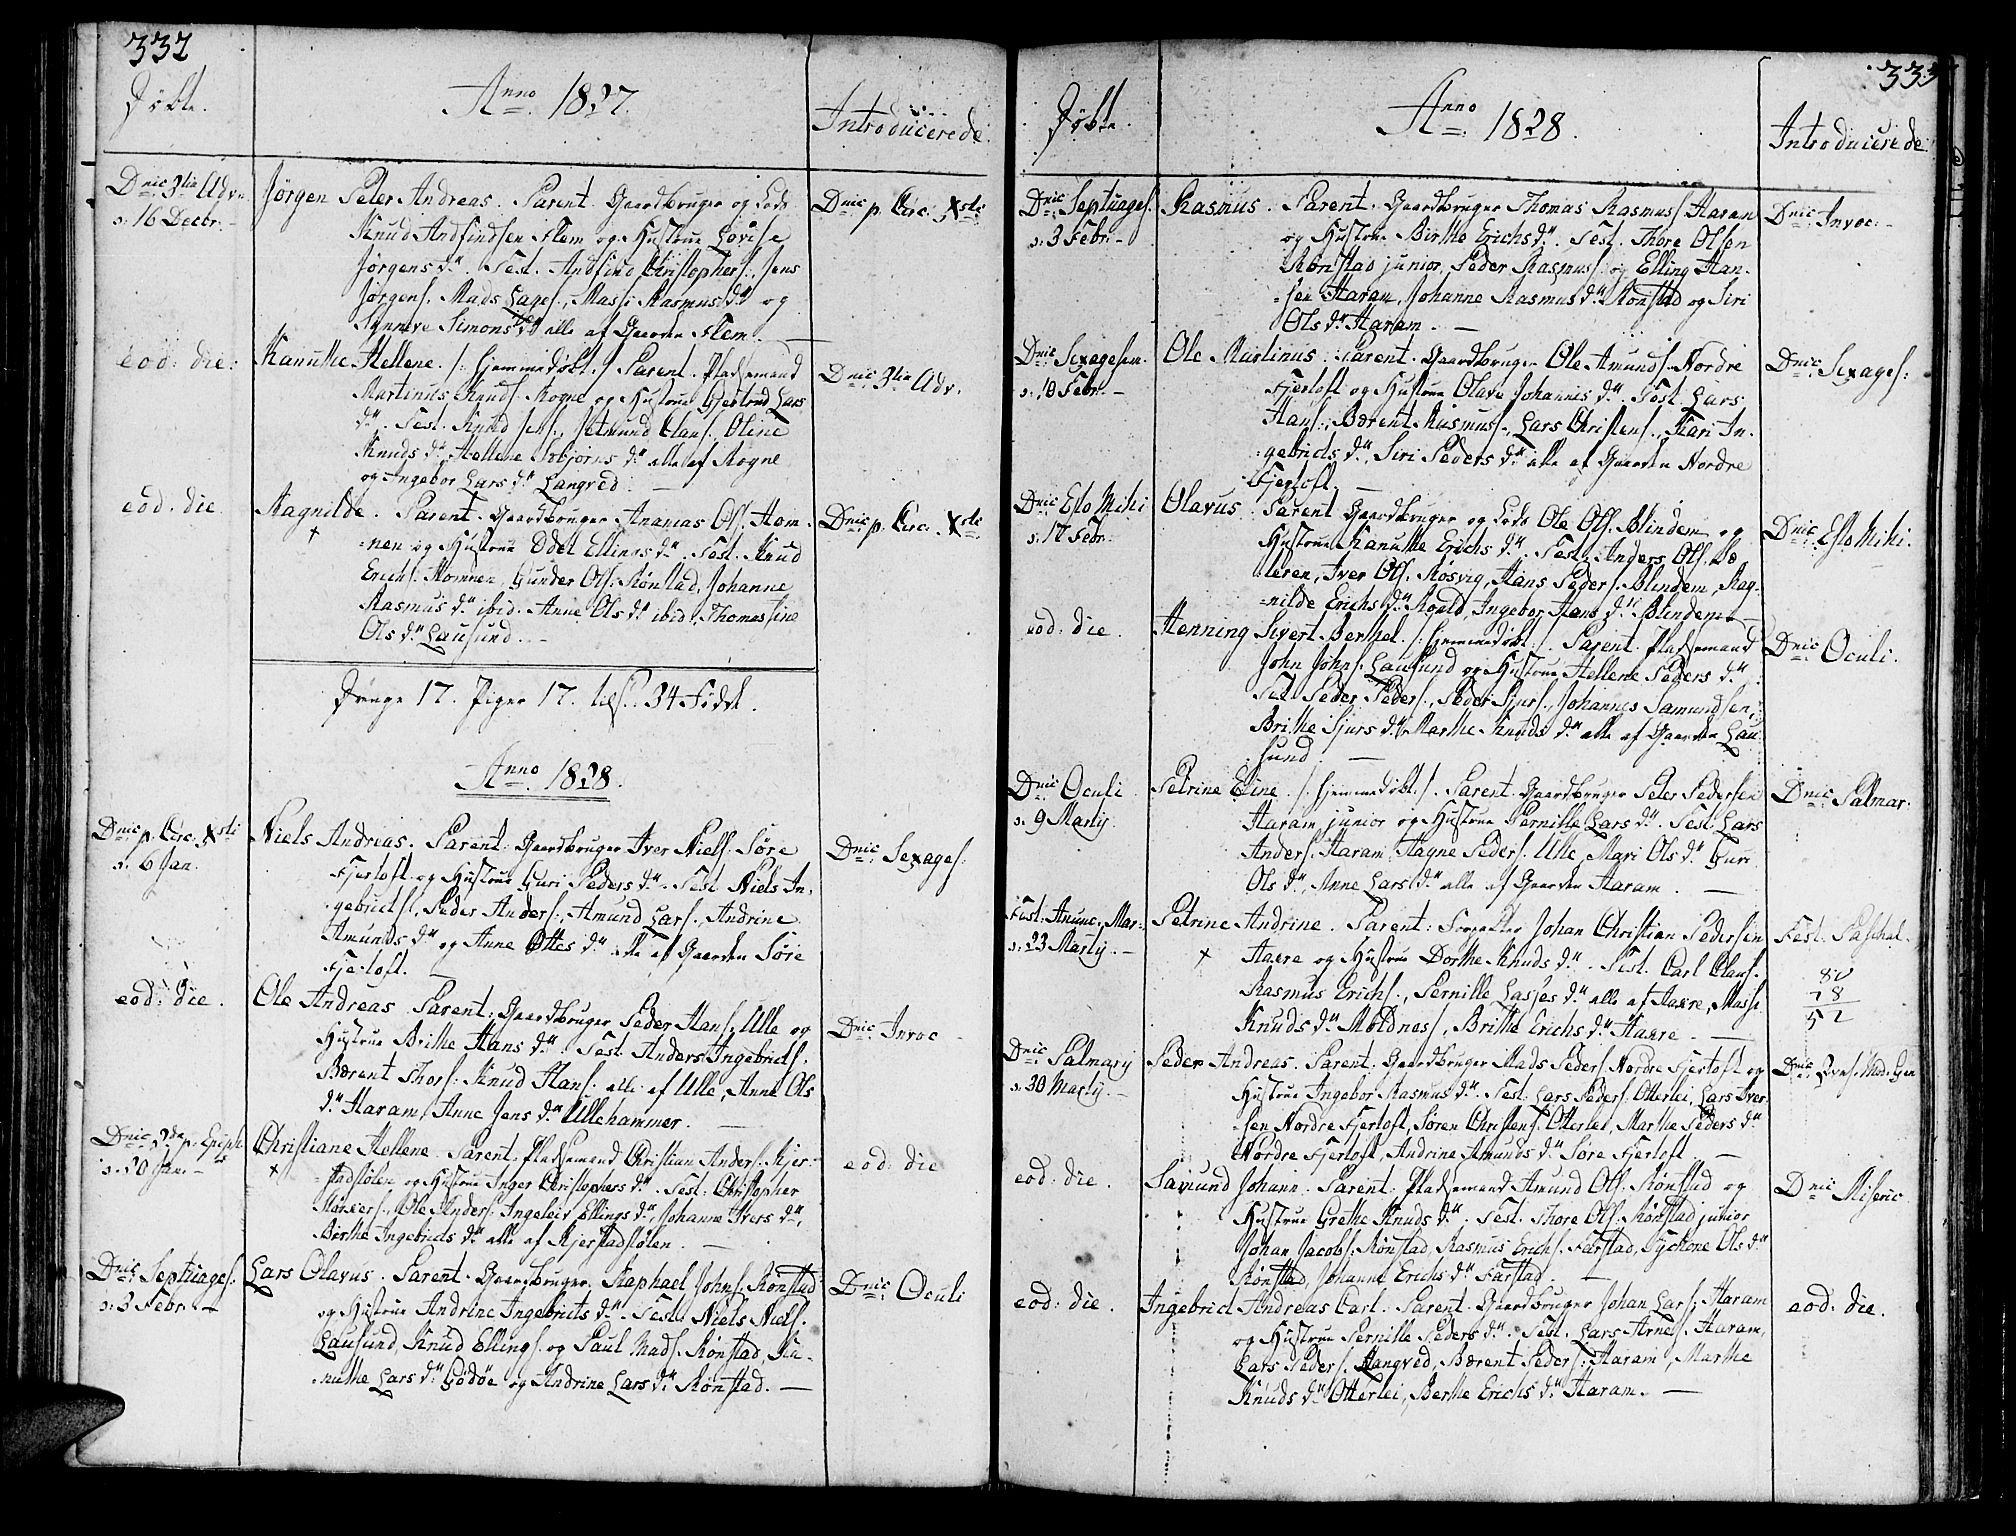 332
Døbte.
Anno 1827.
Introducerede.
Dnic 3tia Adv.
d. 16 Decbr. –
Jørgen Peter Andreas. Parent. Gaardbruger og Lods
Knud Andfindsen Flem og Hustrue Lovise
Jørgens dtr. Test. Andfind Christophers., Jens
Jørgens. Mads Lages., Masse Rasmus dtr og
Synneve Simons dtr alle af Gaarden Flem.
Dnic p. Circ. Xsti
eod: die:
Kanuthe Hellene. /: Hjemmedøbt :/ Parent. Pladsemand
Martinus Knuds. Rogne og Hustrue Gjertrud Lars
dtr. Test. Knud Jens., Amund Claus., Oline
Knuds dtr, Hellene Esbjørns dtr alle af Rogne
og Ingebor Lars dtr Langved.
Dnic. 3tia Adv.
eod. die
Ragnilde. Parent. Gaardbruger Ananias Ols. Hom-
nen og Hustrue Odet Ellings dtr. Test. Knud
Erichs. Homnen, Gunder Ols. Rønstad, Johanne
Rasmus dtr ibid. Anne Ols dtr ibid, Thomassine
Ols dtr Lausund.
Dnic p. Circ. Xsti
Drenge 17. Piger 17. tils. 34 Født.
Anno 1828.
Dnic p. Circ. Xsti
d. 6 Jan.
Niels Andreas. Parent. Gaardbruger Iver Niels. Søre
Fjertoft og Hustrue Guri Peders dtr. Test. Niels In-
gebricts., Peder Anders., Amund Lars., Andrine
Amunds dtr og Anne Ottes dtr alle af Gaarden Søre
Fjertoft.
Dnic. Sexages.
eod: die.
Ole Andreas Parent. Gaardbruger Peder Hans. Ulle og
Hustrue Brithe Hans dtr. Test. Anders Ingebricts.
Bærent Thors. Knud Hans. alle af Ulle, Anne Ols
dtr Haram, Anne Jens dtr Ullehammer.
Dnic. Invoc
Dnic 2da p. Epiph.
d. 20 Jan. –
Christiane Hellene. Parent. Pladsemand Christian Anders. Kjer-
stadstølen og Hustrue Inger Christophers dtr. Test: Christopher
Ole Anders. Ingeleiv Ellings dtr, Johanne Ivers dtr,
Birthe Ingebricts dtr alle af Kjerstadstølen.
eod: die
Dnic: Septuages.
d. 3 Febr. –
Lars Olavus. Parent. Gaardbruger Raphael Johns. Rønstad
og Hustrue Andrine Ingebricts dtr. Test. Niels Niels.
Lausund, Knud Ellings. og Paul Mads. Rønstad, Ka-
nuthe Lars dtr Godøe og Andrine Lars dtr Rønstad. –
Dnic: Oculi
333
Døbte.
Anno 1828.
Introducerede.
Dnic. Septuages.
d. 3 Febr. –
Rasmus. Parent. Gaardbruger Thomas Rasmus. Haram
og Hustrue Birthe Erichs dtr. Test. Thore Olsen
Rønstad junior, Peder Rasmus. og Elling Han-
sen Haram, Johanne Rasmus dtr Rønstad og Siri
Ols dtr Haram. –
Dnic: Invoc: –
Dnic. Sexagesem.
d. 10 Febr. –
Ole Martinus. Parent. Gaardbruger Ole Amunds. Nordre
Fjertoft og Hustrue Olave Johannis dtr. Test. Lars
Hans., Bærent Rasmus., Lars Christens., Kari In-
gebricts dtr, Siri Peders dtr alle af Gaarden Nordre
Fjertoft. –
Dnic. Sexages:
Dnic. Esto Mihi
d. 17 Febr.
Olavus. Parent Gaardbruger og Lods Ole Ols. Blindem og
Hustrue Kanuthe Erichs dtr. Test. Anders Ols. Læ-
leren, Iver Ols. Røsvig, Hans Peders. Blindem, Rag-
nilde Erichs dtr Roald, Ingebor Hans dtr Blindem.
Dnic. Esto Mihi.
eod: die.
Henning Sivert Berthel. /: Hjemmedøbt :/ Parent. Pladsemand
John Johns. Lausund og Hustrue Hellene Peders dtr.
Test. Peder Peders., Peder Sjurs., Johannes Samundsen,
Brithe Sjurs dtr, Marthe Knuds dtr alle af Gaarden Lau-
sund. –
Dnic. Oculi.
Dnic Oculi
d. 9 Martij.
Petrine Eine. /: Hjemmedøbt :/. Parent. Gaardbruger Peter Pedersen
Haram junior og Hustrue Pernille Lars dtr. Test. Lars
Anders. Haram, Hagne Peders. Ulle, Mari Ols dtr Guri
Ols dtr, Anne Lars dtr alle af Gaarden Haram. –
Dnic. Palmar.
Fest: Anunc: Mar:
d. 23 Martij. –
Petrine Andrine. Parent: Johan Christian Pedersen
Haere og Hustrue Dorthe Knuds dtr. Test. Carl Claus.
Rasmus Erichs., Pernille Lasses dtr alle af Haere, Masse
Knuds dtr Moldnes, Brithe Erichs dtr Haere. –
Fest: Paschal.
80
28
52
Dnic Palmarij
d. 30 Martij. –
Peder Andreas. Parent. Gaardbruger Mads Peders. Nordre Fjertoft og
Hustrue Ingebor Rasmus dtr. Test. Lars Peders. Otterlei, Lars Iver-
sen Nordre Fjertoft, Søren Christens. Otterlei, Marthe Peders dtr
Nordre Fjertoft, Andrine Amunds dtr Søre Fjertoft. –
eod: die.
Johann. Parent: Pladsemand Amund Ols. Rønstad og
Hustrue Grethe Knuds dtr. Test. Thore Ols. Rønstad junior
Johan Jacobs. Rønstad, Rasmus Erichs. Farstad, Ols dtr
Rønstad, Johanne Erichs dtr Farstad.
Dnic Miseric
eod: die.
Ingebrict Andreas Carl. Parent. Gaardbruger Johan Lars. Haram
og Hustrue Pernille Peders dtr. Test. Lars Arnes. Haram,
Lars Peders. Langved, Bærent Peders. Haram, Marthe
Knuds dtr Otterlei, Berthe Erichs dtr Haram. –
eod: die.